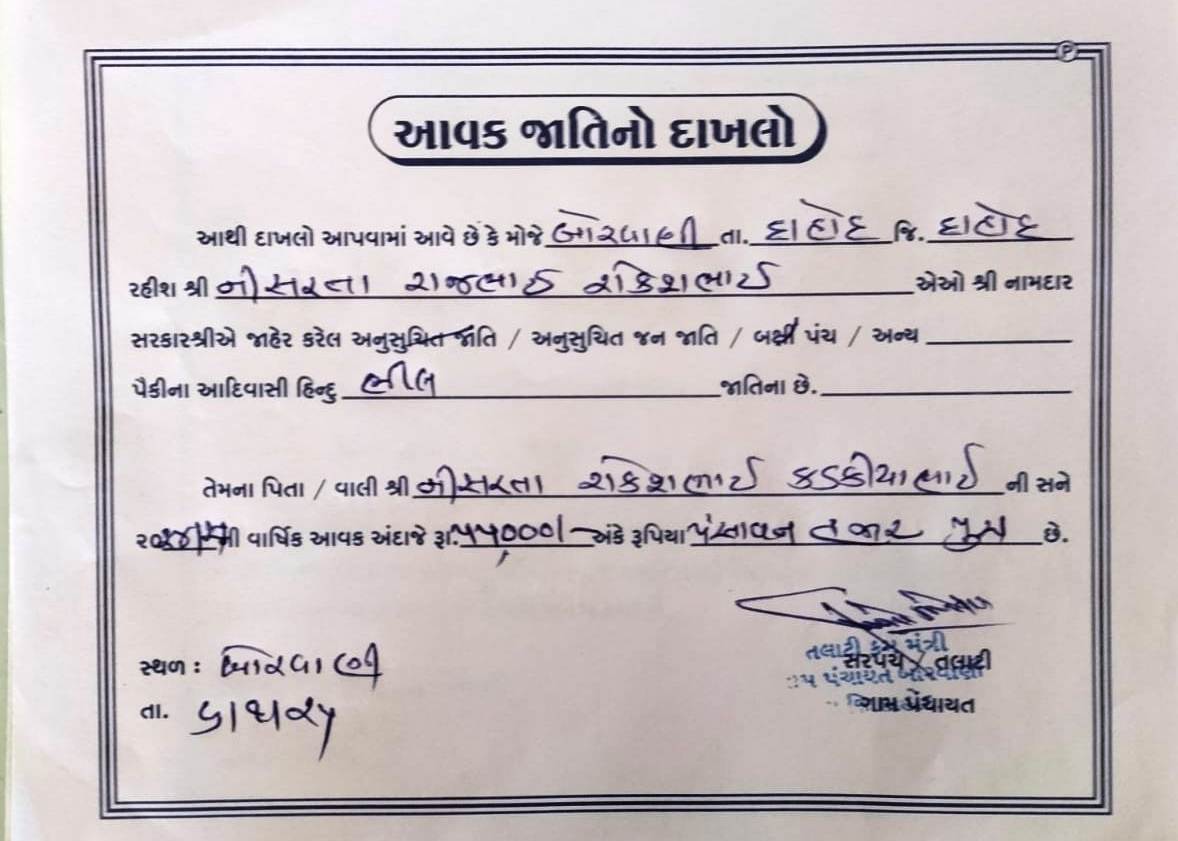 આવક જાતિનો દાખલો
આથી દાખલો આપવામાં આવે છે કે મોજે બોરવાણી તા. દાહોદ જિ. દાહોદ
રહીશ શ્રી નીસરતા રાજભાઈ રાકેશભાઈ એઓ શ્રી નામદાર
સરકારશ્રીએ જાહેર કરેલ અનુસુચિત જાતિ / અનુસુચિત જન જાતિ / બક્ષી પંચ / અન્ય
પૈકીના આદિવાસી હિન્દુ ભીલ જાતિના છે.
તેમના પિતા / વાલી શ્રી નીસરતા રાકેશભાઈ કડકીયાભાઈ ની સને
ની વાર્ષિક આવક અંદાજે રૂા. ૫૫૦૦૦/- અંકે રૂપિયા પંચાવન હજાર પુરા છે.
સ્થળ : બોરવાણી
તલાટી કમ મંત્રી
સરપંચ / તલાટી
પંચાયત બોરવાણી
ગ્રામ પંચાયત
તા.